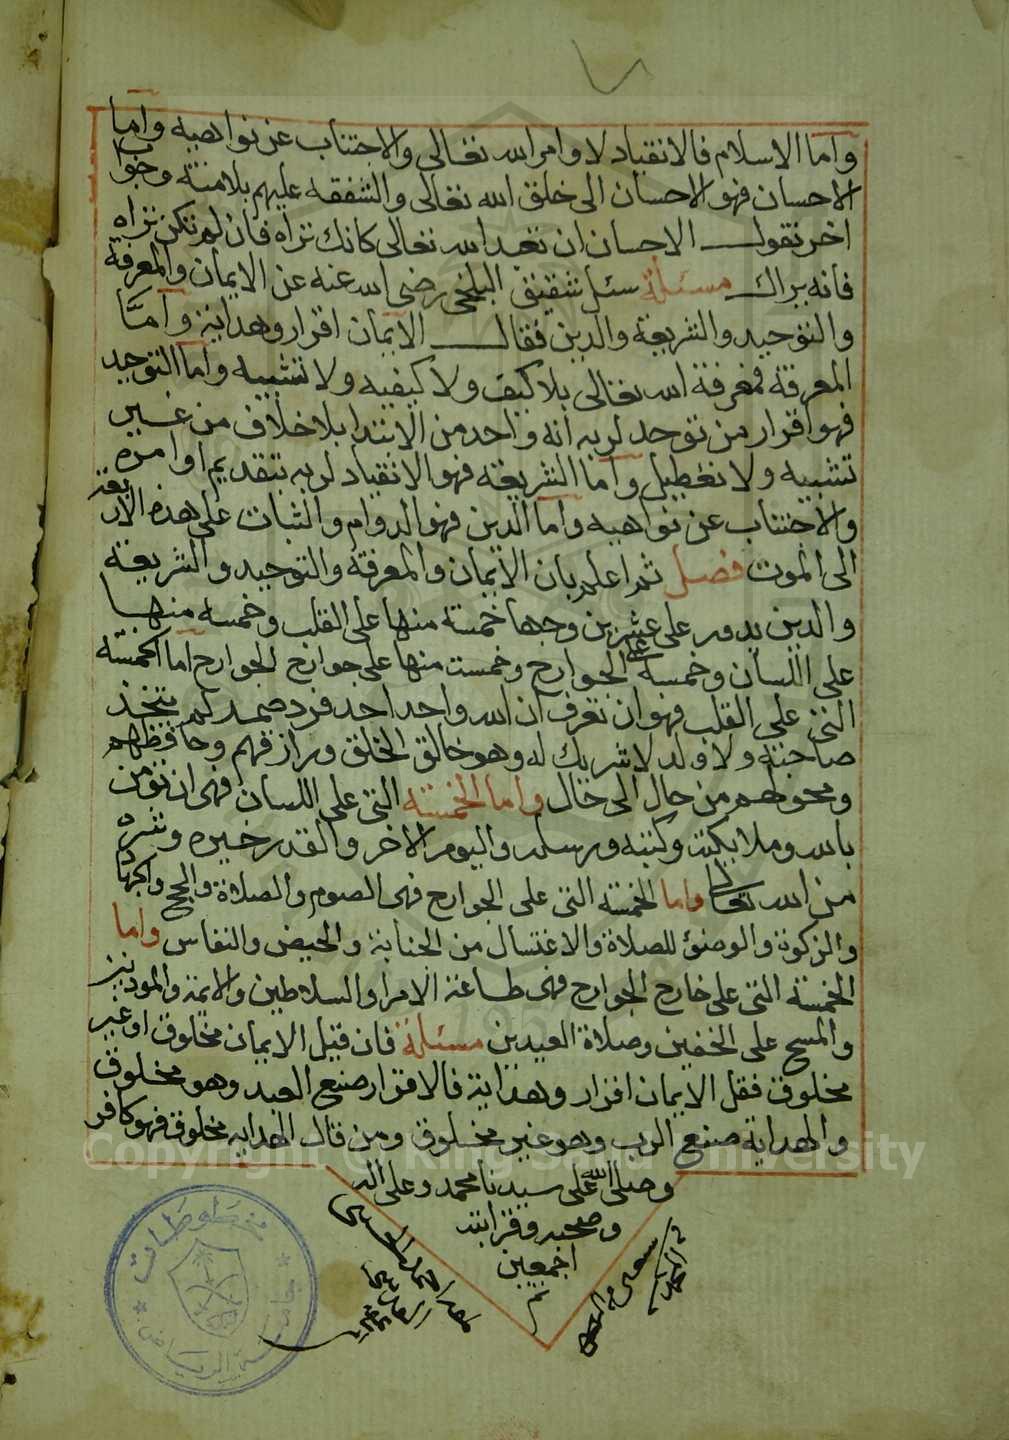 واما الاسلام فالانقياد لاوامر الله تعالى والاجتناب عن نواهيه واما
الاحسان فهو الاحسان الى خلق الله تعالى والشفقه عليهم بلامنة وجواب
اخر نقول الاحسان ان تعبد الله تعالى كانك تراه فان لم تكن تراه
فانه يراك مسئلة سئل شقيق البلخى رضى الله عنه عن الايمان والمعرفة
والتوحيد والشريعة والدين فقال الايمان اقرار وهداية واما
المعرفة فمعرفة الله تعالى بلا كيف ولا كيفيه ولا تشبيه واما التوحيد
فهو اقرار من توحد لربه انه واحد من الابتدا بلا خلاف من غير
تشبيه ولا تعطيل واما الشريعة فهو الانقياد لربه بتقديم اوامره
والاجتناب عن نواهيه واما الدين فهو الدوام والثبات على هذه الاربعة
الى الموت فصل ثم اعلم بان الايمان والمعرفة والتوحيد والشريعة
والدين يدور على عشرين وجها خمسة منها على القلب وخمسه منها
على اللسان وخمسة على الجوارح وخمست منها على جوارح الجوارح اما الخمسة
التى على القلب فهو ان تعرف ان الله واحد احد فرد صمد لم يتخذ
صاحبة ولا ولد لا شريك له وهو خالق الخلق ورازقهم وحافظهم
ومحولهم من حال الى حال واما الخمسة التى على اللسان فهى ان تؤمن
بالله وملايكته وكتبه ورسله واليوم الاخر والقدر خيره وشره
من الله تعالى واما الخمسة التى على الجوارح فهى الصوم والصلاة والحج والجهاد
والزكوة والوضؤ للصلاة والاغتسال من الجنابة والحيض والنفاس واما
الخمسة التى على خارج الجوارح فهى طاعة الامرا والسلاطين والائمة والموذنين
والمسح على الخفين وصلاة العيدين مسئلة فان قيل الايمان مخلوق او غير
مخلوق فقل الايمان اقرار وهداية فالاقرار صنع العبد وهو مخلوق
والهداية صنع الرب وهو غير مخلوق ومن قال الهدايه مخلوق فهو كافر
وصلى الله على سيدنا محمد وعلى اله
وصحبه وقرابته
اجمعين
تم
مخطوطات
جامعة الرياض
Copyright © King Saud University